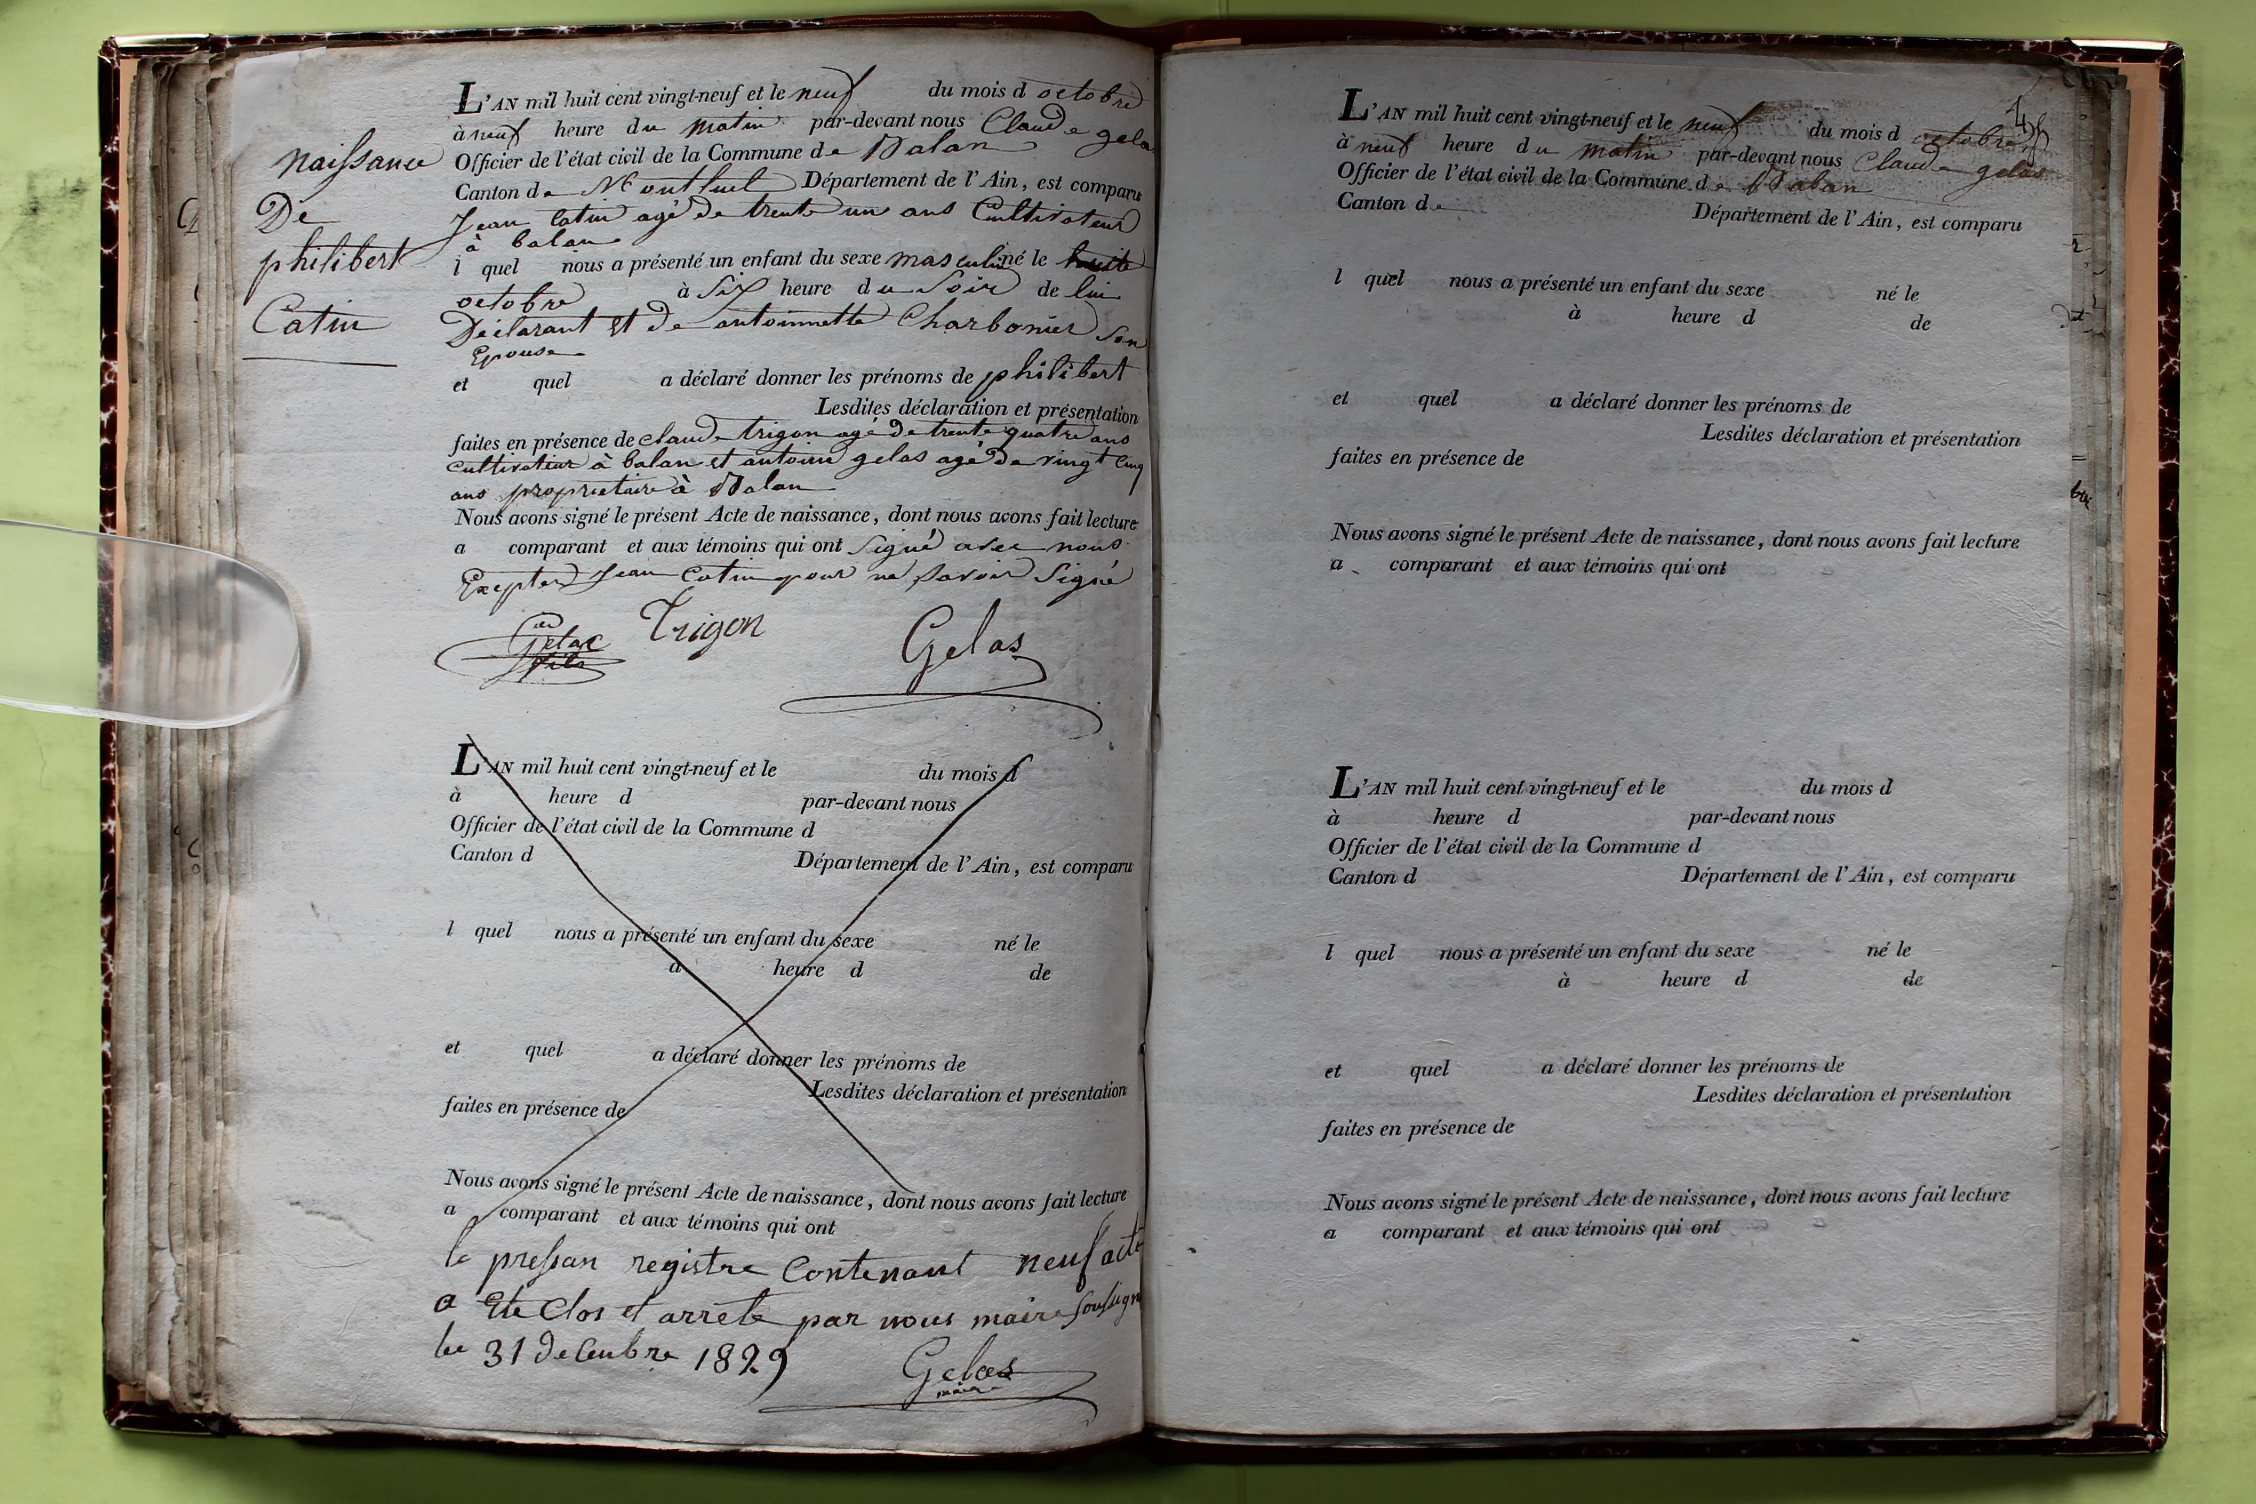 naissance
De
philibert
Catin
L'AN mil huit cent vingt-neuf et le neuf du mois d octobre
à neuf heure du matin par-devant nous Claude gelas
Officier de l'état civil de la Commune de Balan
Canton de Montluel Département de l'Ain, est comparu
Jean Catin agé de trente un ans Cultivateur
à balan
l quel nous a présenté un enfant du sexe masculin né le huit
octobre à Six heure du Soir de lui
Déclarant et de antoinnette Charbonier Son
Epouse
et quel a déclaré donner les prénoms de philibert
Lesdites déclaration et présentation
faites en présence de claude trigon agé de trente quatre ans
cultivateur à balan et antoine gelas agé de vingt Cinq
ans propriétaire à Balan
Nous avons signé le présent Acte de naissance, dont nous avons fait lecture
a comparant et aux témoins qui ont Signé avec nous
Excepter Jean Catin pour ne Savoir Signé
Gelas
fils
Trigon
Gelas
L'AN mil huit cent vingt-neuf et le du mois d
à heure d par-devant nous
Officier de l'état civil de la Commune d
Canton d Département de l'Ain, est comparu
l quel nous a présenté un enfant du sexe né le
à heure d de
et quel a déclaré donner les prénoms de
Lesdites déclaration et présentation
faites en présence de
Nous avons signé le présent Acte de naissance, dont nous avons fait lecture
a comparant et aux témoins qui ont
le pressan registre Contenant neuf acte
a Ete Clos et arrete par nous maire soussigné
le 31 decenbre 1829
Gelas
maire
L'AN mil huit cent vingt-neuf et le neuf du mois d octobre
à neuf heure du matin par-devant nous Claude gelas
Officier de l'état civil de la Commune de Balan
Canton de Département de l'Ain, est comparu
l quel nous a présenté un enfant du sexe né le
à heure d de
et quel a déclaré donner les prénoms de
Lesdites déclaration et présentation
faites en présence de
Nous avons signé le présent Acte de naissance, dont nous avons fait lecture
a comparant et aux témoins qui ont
L'AN mil huit cent vingt-neuf et le du mois d
à heure d par-devant nous
Officier de l'état civil de la Commune d
Canton d Département de l'Ain, est comparu
l quel nous a présenté un enfant du sexe né le
à heure d de
et quel a déclaré donner les prénoms de
Lesdites déclaration et présentation
faites en présence de
Nous avons signé le présent Acte de naissance, dont nous avons fait lecture
a comparant et aux témoins qui ont